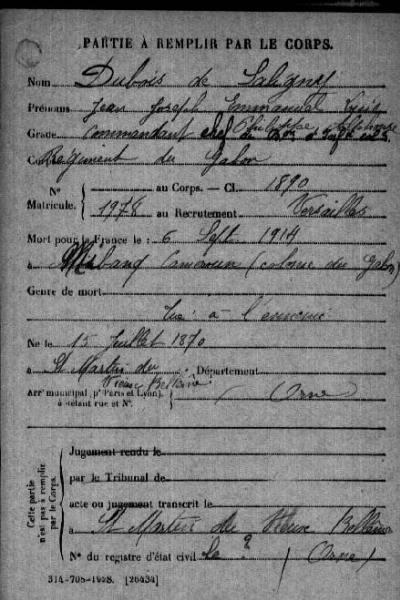 PARTIE À REMPLIR PAR LE CORPS.
Nom Dubois de Saligny
Prénoms Jean Joseph Emmanuel Louis
Philippe Alphonse
Grade Commandant chef de
Corps Régiment du Gabon
N° Matricule. { au Corps. — Cl. 1890
1978 au Recrutement Versailles
Mort pour la France le : 6 Sept. 1914
à Mibang Cameroun (colonie du Gabon)
Genre de mort
Tué à l'ennemi
Né le 15 Juillet 1870
à St Martin du Vieux Bellême Département Orne
Arr<sup>t</sup> municipal (p<sup>r</sup> Paris et Lyon), à défaut rue et N°.
Cette partie n'est pas à remplir par le Corps.
Jugement rendu le
par le Tribunal de
acte ou jugement transcrit le
à St Martin du Vieux Bellême
N° du registre d'état civil (Orne)
314-708-1928. [26434]